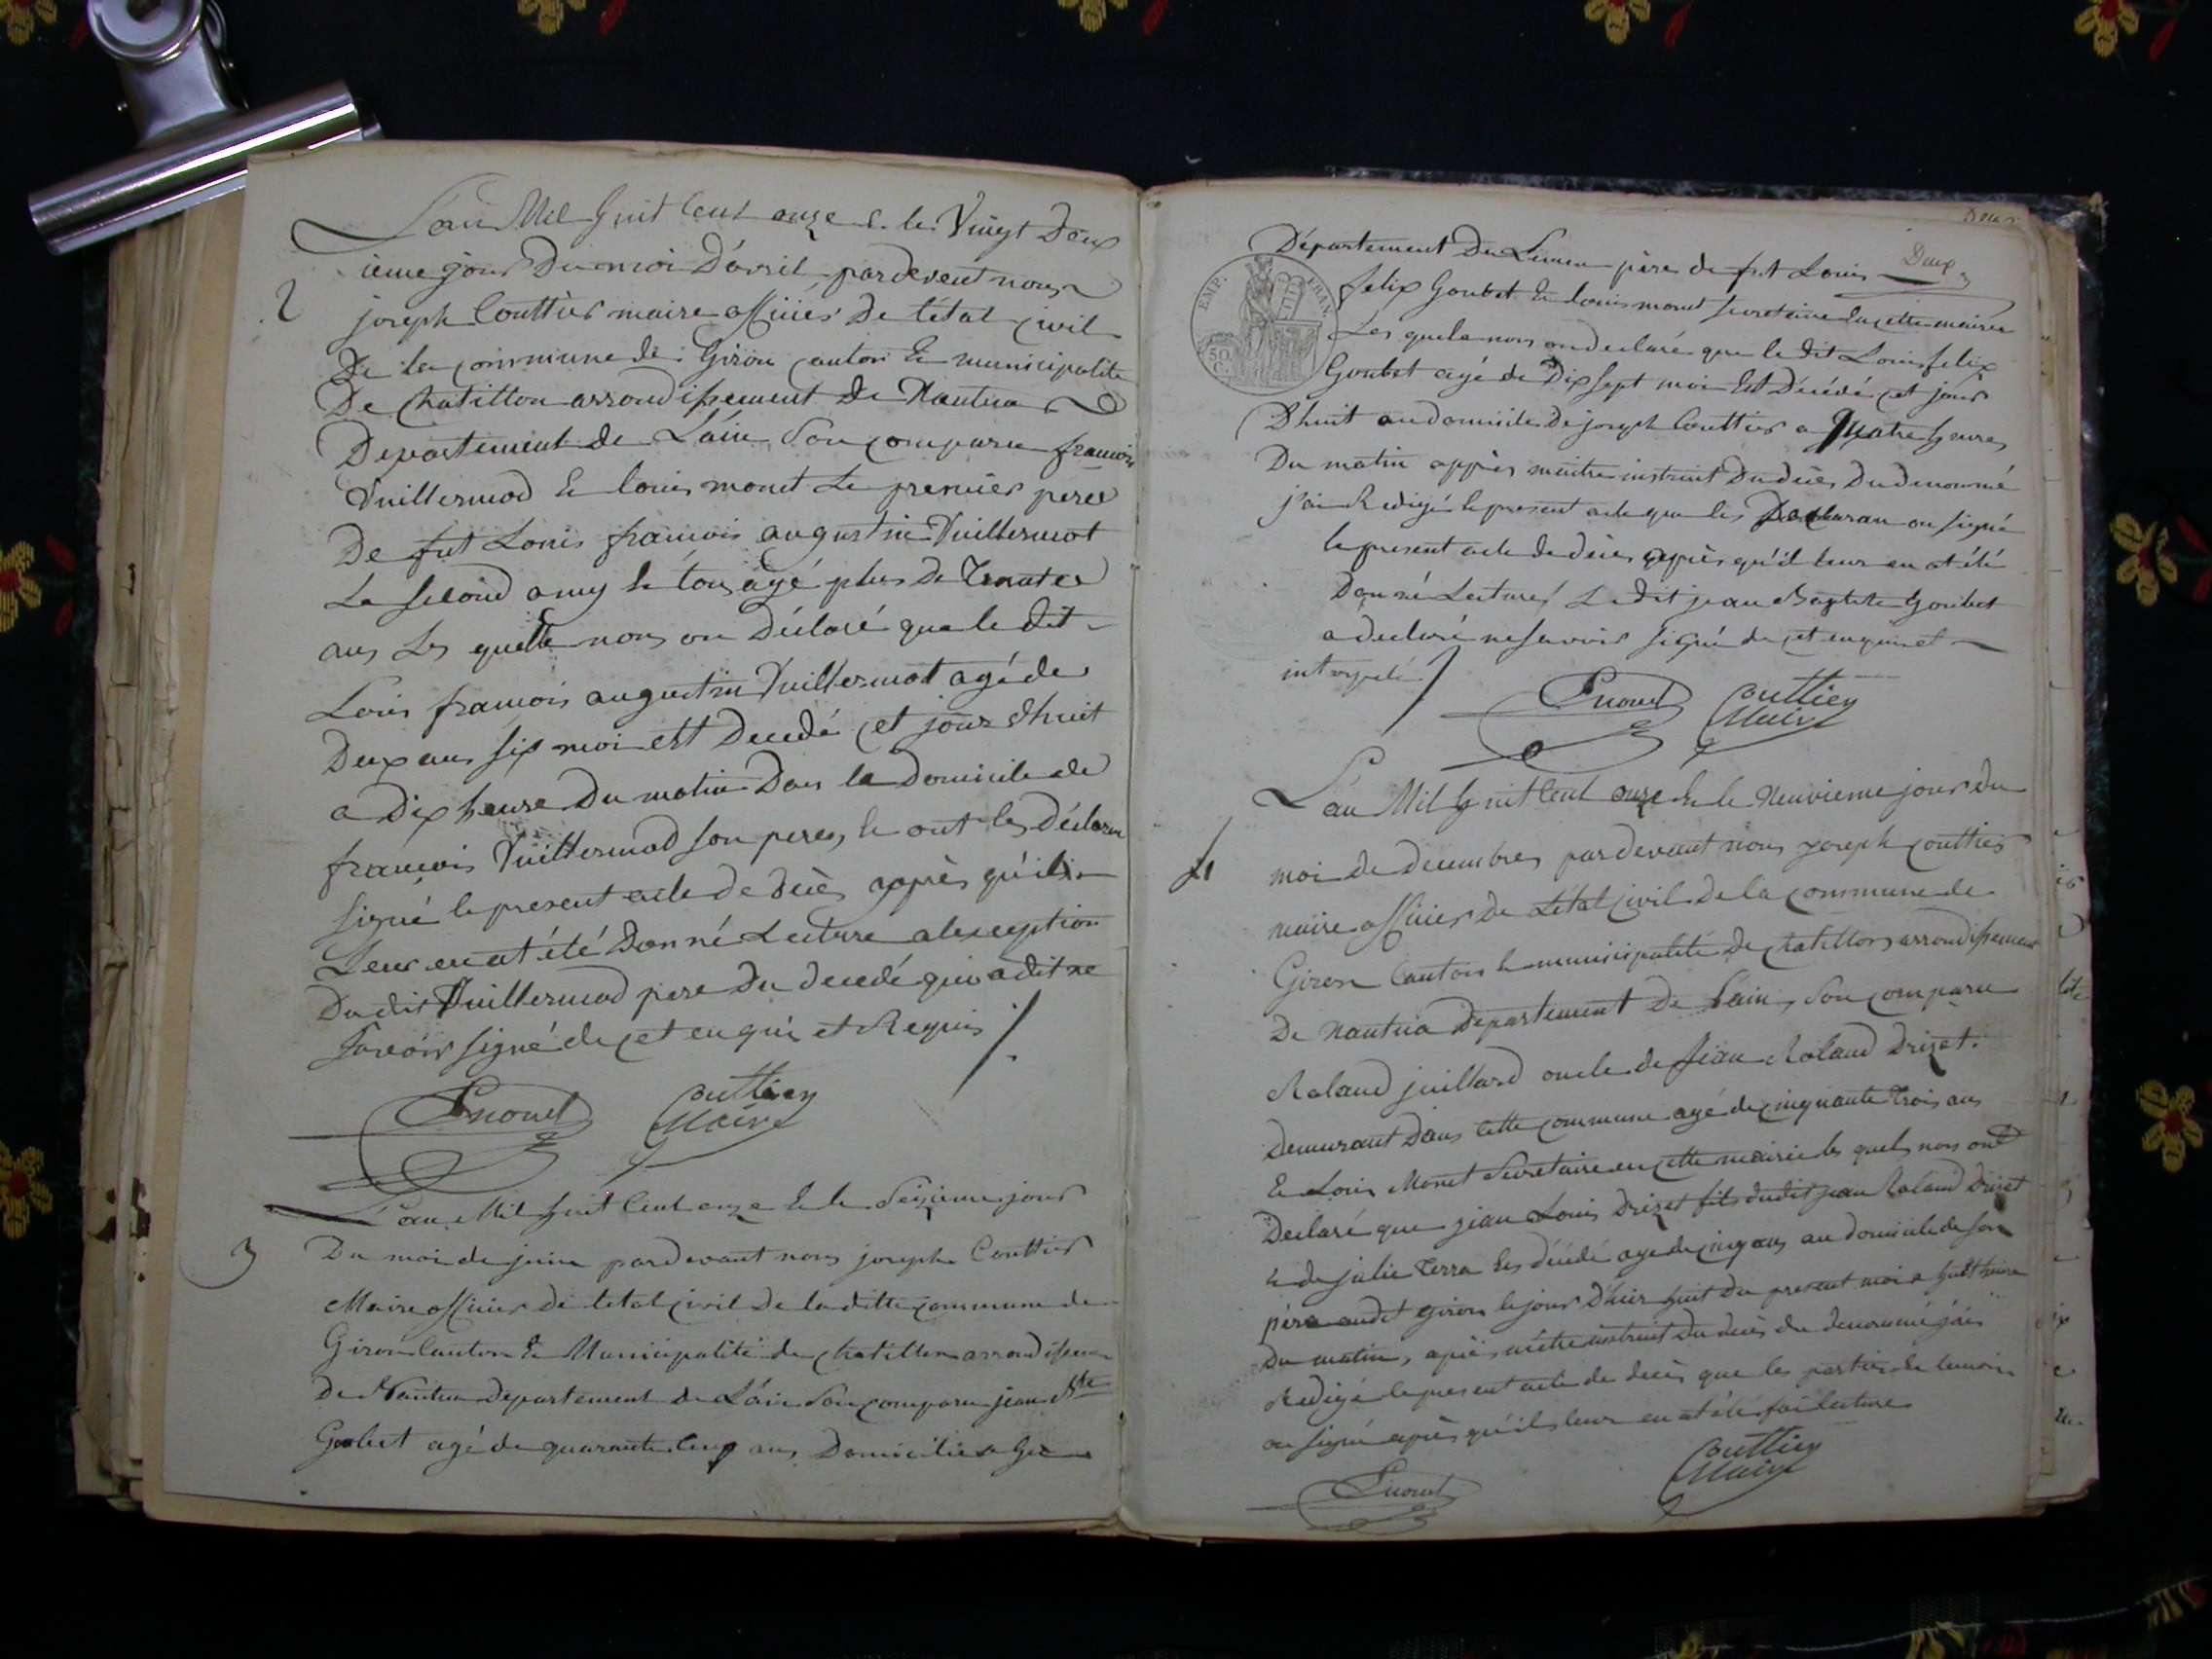 L'an Mil huit Cent onze & le Vingt Deux
ieme jour Du moi D'avril, pardevent nous
2
joseph Couttier maire officier De l'état civil
De la commune de Giron canton & municipalite
De Chatillon arrondissement De Nantua
Departement de L'ain Son comparu francois
Vuillermod & louis monet Le premier pere
De fut Louis francois augustin Vuillermot
Le second amy & tous agé plus De Trente
ans Les quelle nous on Déclaré que le dit
Louis francois augustin Vuillermot agé de
Deux ans six moi est Decedé cet jour d'huit
a Dix heure Du matin Dans le Domicile de
francois Vuillermod son pere, & ont les Déclaran
signé le present acte de décès apprès qu'il
Leur en at été Donné Lecture a lexception
Du dit Vuillermod pere Du decedé qui a dit ne
savoir signé de cet enquis et Requis
Lmonet Couttier
Maire
L'an Mil huit Cent onze & le Seizieme jour
3
Du moi de juin pardevant nous joseph Couttier
Maire officier de letat civil De la ditte commune de
Giron Canton & Municipalité de chatillon arrondissemen
De Nantua departement de L'ain Son comparu jean Bte
Goubet agé de quarante cinq ans, Domicilié a Ge
Deux
Deux
Département Du Leman père de fut Louis
EMP. FRAN.
50 C.
felix Goubet & louis monet secretaire En cette mairie
Les quels nous on declaré que le dit Louis felix
Goubet agé de Dix sept moi Est Décédé cet jour
D'huit au domicile De joseph Couttier a Quatre heures
Du matin apprès m'être instruit Du décès Du denommé
j'ai Redigé le present acte que les Declaran on signé
le present acte de décès apprès qu'il leur en at été
Donné Lecture Le dit jean Baptiste Goubet
a declaré ne savoir signé de cet enquis et
interpelé
Lmonet Couttier
Maire
L'an Mil huit Cent onze & le Neuvieme jour Du
4
moi de decembre, pardevant nous joseph couttier
maire officier De L'état civil De la commune de
Giron Canton & municipalité De chatillon arrondissement
De nantua Departement De L'ain, Son comparu
Roland juillard oncle de Jean Roland Drizet.
Demurant Dans Cette commune agé de cinquante trois ans
& Louis Monet Secretaire en cette mairie les quels nous ont
Declaré que jean Louis Drizet fils dudit jean Roland Drizet
& de julie Terra Es décédé age de cinq ans au domicile de son
père audit giron le jour D'hier huit du present moi a huit heure
Du matin, après m'être instruit Du décès du denommé j'ai
Redigé le present acte de décès que les parties & temoin
on signé après qu'il leur en at été fai lecture
Lmonet Couttier
Maire